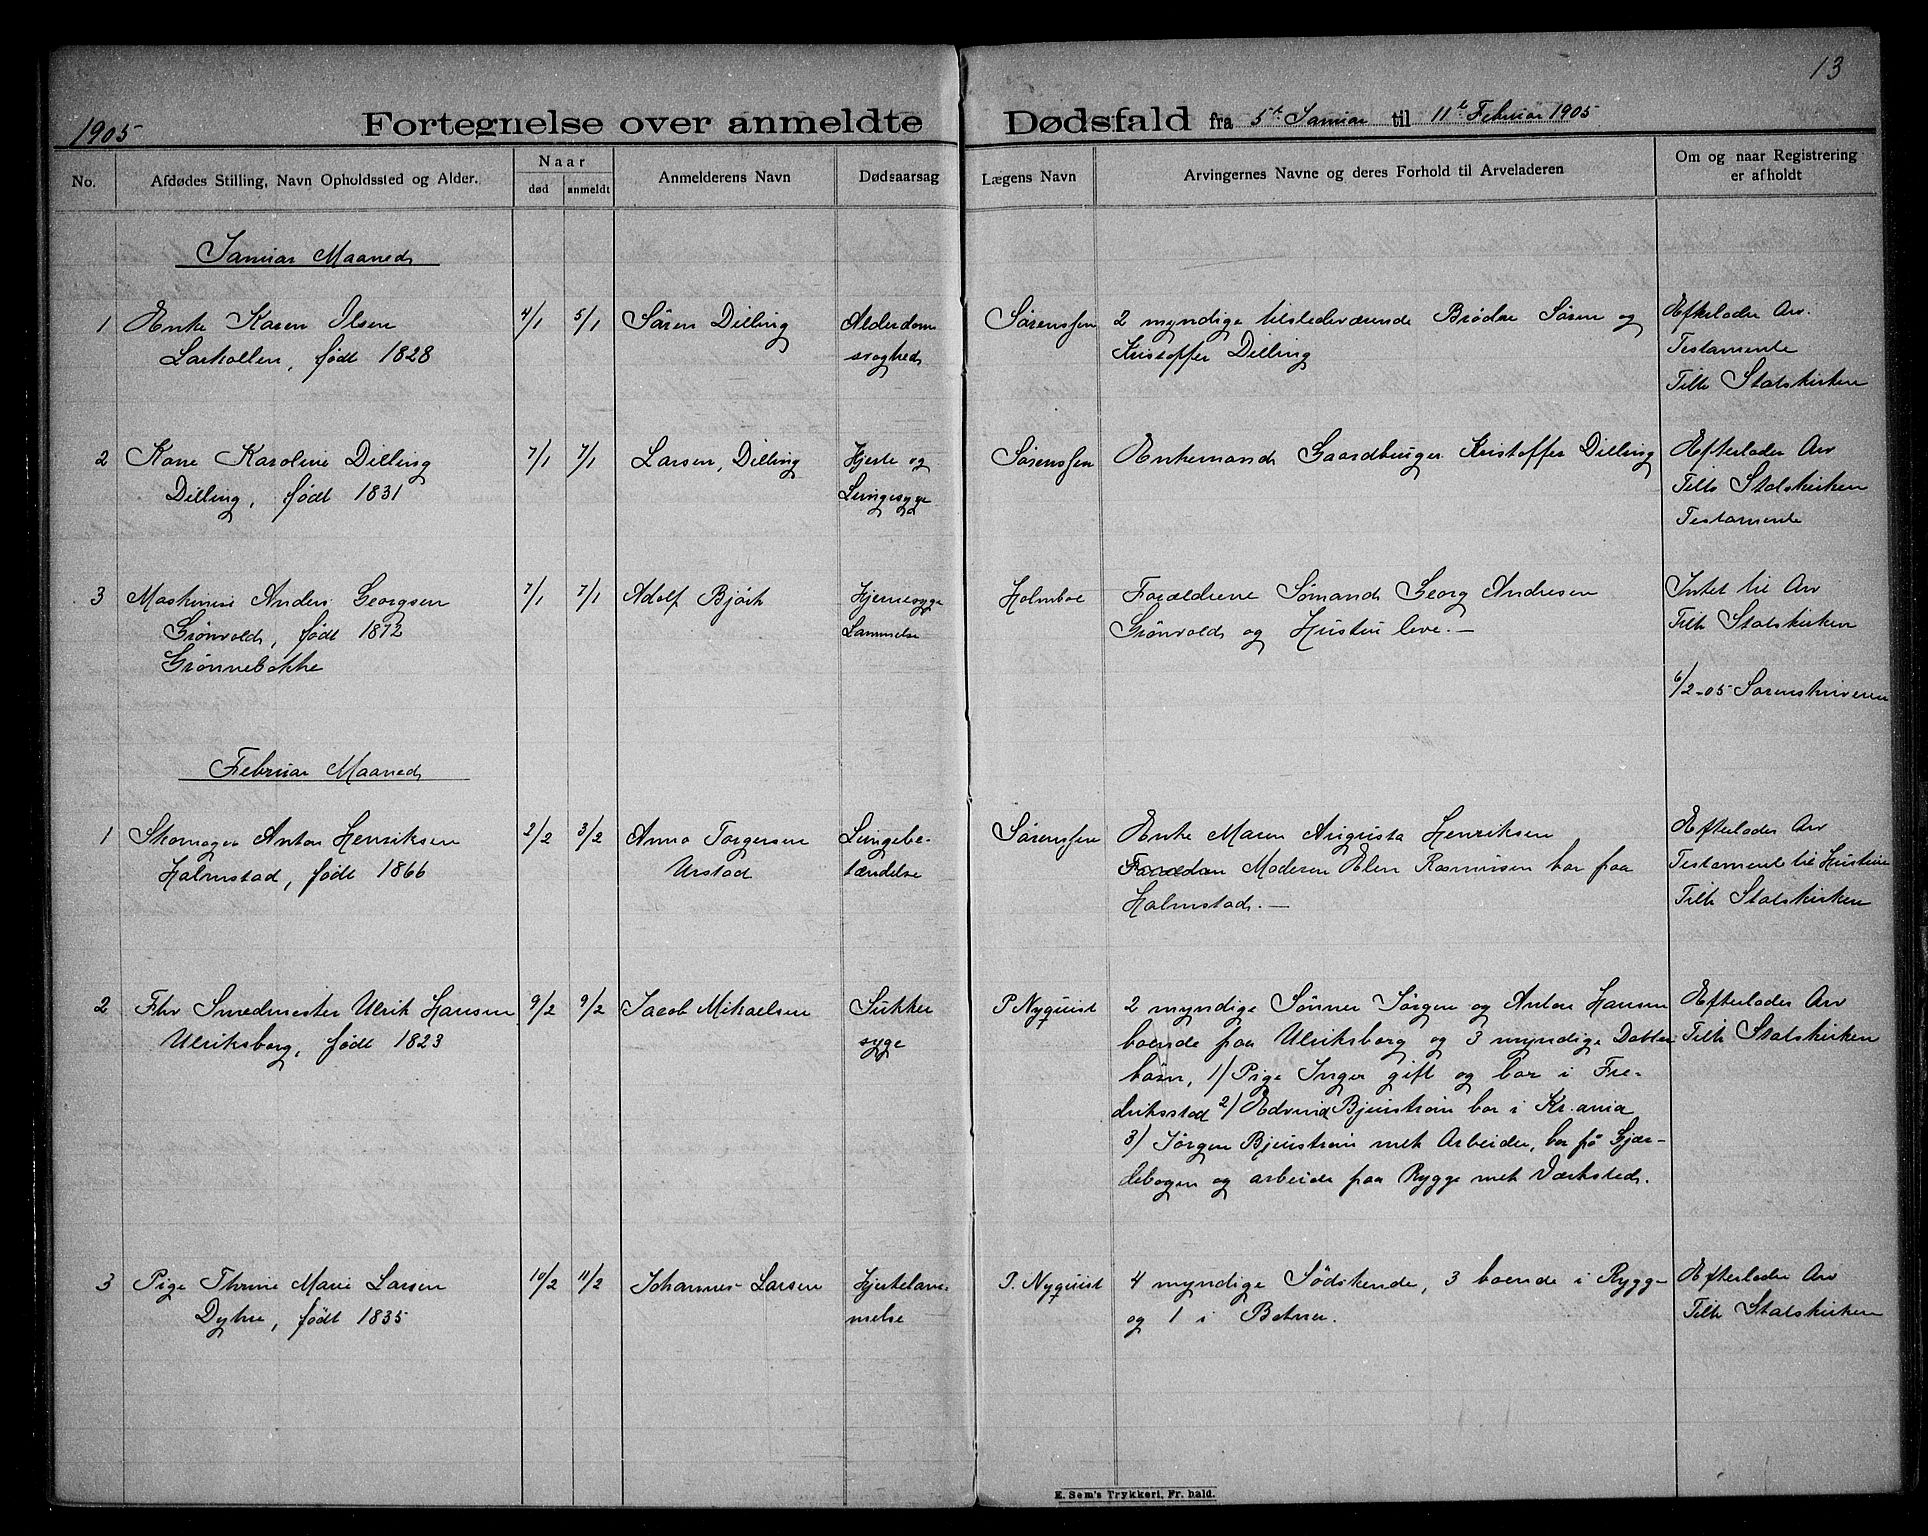 13
1905
Fortegnelse over anmeldte Dødsfald fra 5t Januar til 11t Februar 1905
No.
Afdødes Stilling, Navn Opholdssted og Alder.
Naar
død
anmeldt
Anmelderens Navn
Dødsaarsag
Lægens Navn
Arvingernes Navne og deres Forhold til Arveladeren
Om og naar Registrering
er afholdt
Januar Maaned
1 Enke Karen Olsen 4/1 5/1 Søren Dilling Alderdom Sørenssen 2 myndige tilstedeværende Brødre Søren og Efterlader Arv.
Larkollen, født 1828 svaghed Kristoffer Dilling Testamente
Tilh Statskirken
2 Kone Karoline Dilling 7/1 7/1 Larsen, Dilling Hjerte og Sørenssen Enkemand Gaardbruger Kristoffer Dilling Efterlader Arv
Dilling, født 1831 Lungesyge Tilh Statskirken
Testamente
3 Maskinist Anders Georgsen 7/1 7/1 Adolf Bjørk Hjernesyge Holmboe Forældrene Sømand Georg Andresen Intet til Arv
Grønvold, født 1872 Lammelse Grønvold og Hustru leve. — Tilh Statskirken
Grønnebakke
6/2-05 Sorenskriveren
Februar Maaned
1 Skomager Anton Henriksen 2/2 3/2 Anna Torgersen Lungebe- Sørenssen Enke Maren Augusta Henriksen Efterlader Arv
Halmstad, født 1866 Urstad tændelse Moderen Elen Rasmussen bor paa Testamente til Hustruen
Halmstad. — Tilh Statskirken
2 Fhv Smedmester Ulrik Hansen 9/2 9/2 Jacob Mikaelsen Sukker P. Nyquist 2 myndige Sønner Jørgen og Anton Hansen Efterlader Arv
Ulriksborg, født 1823 syge boende paa Ulriksborg og 3 myndige Datter Tilh Statskirken
børn, 1) Pige Inger gift og bor i Fre-
driksstad 2) Edvind Bjurstrøm bor i Kr.ania
3) Jørgen Bjurstrøm mek Arbeider, bor på Gjær-
debogen og arbeider paa Rygge mek Værksted.
3 Pige Thrine Marie Larsen 10/2 11/2 Johannes Larsen Hjertelam- P. Nyquist 4 myndige Södskende, 3 boende i Rygge Efterlader Arv
Dyhre, født 1835 melse og 1 i Botner. Tilh Statskirken
E. Sem's Trykkeri, Fr. hald.